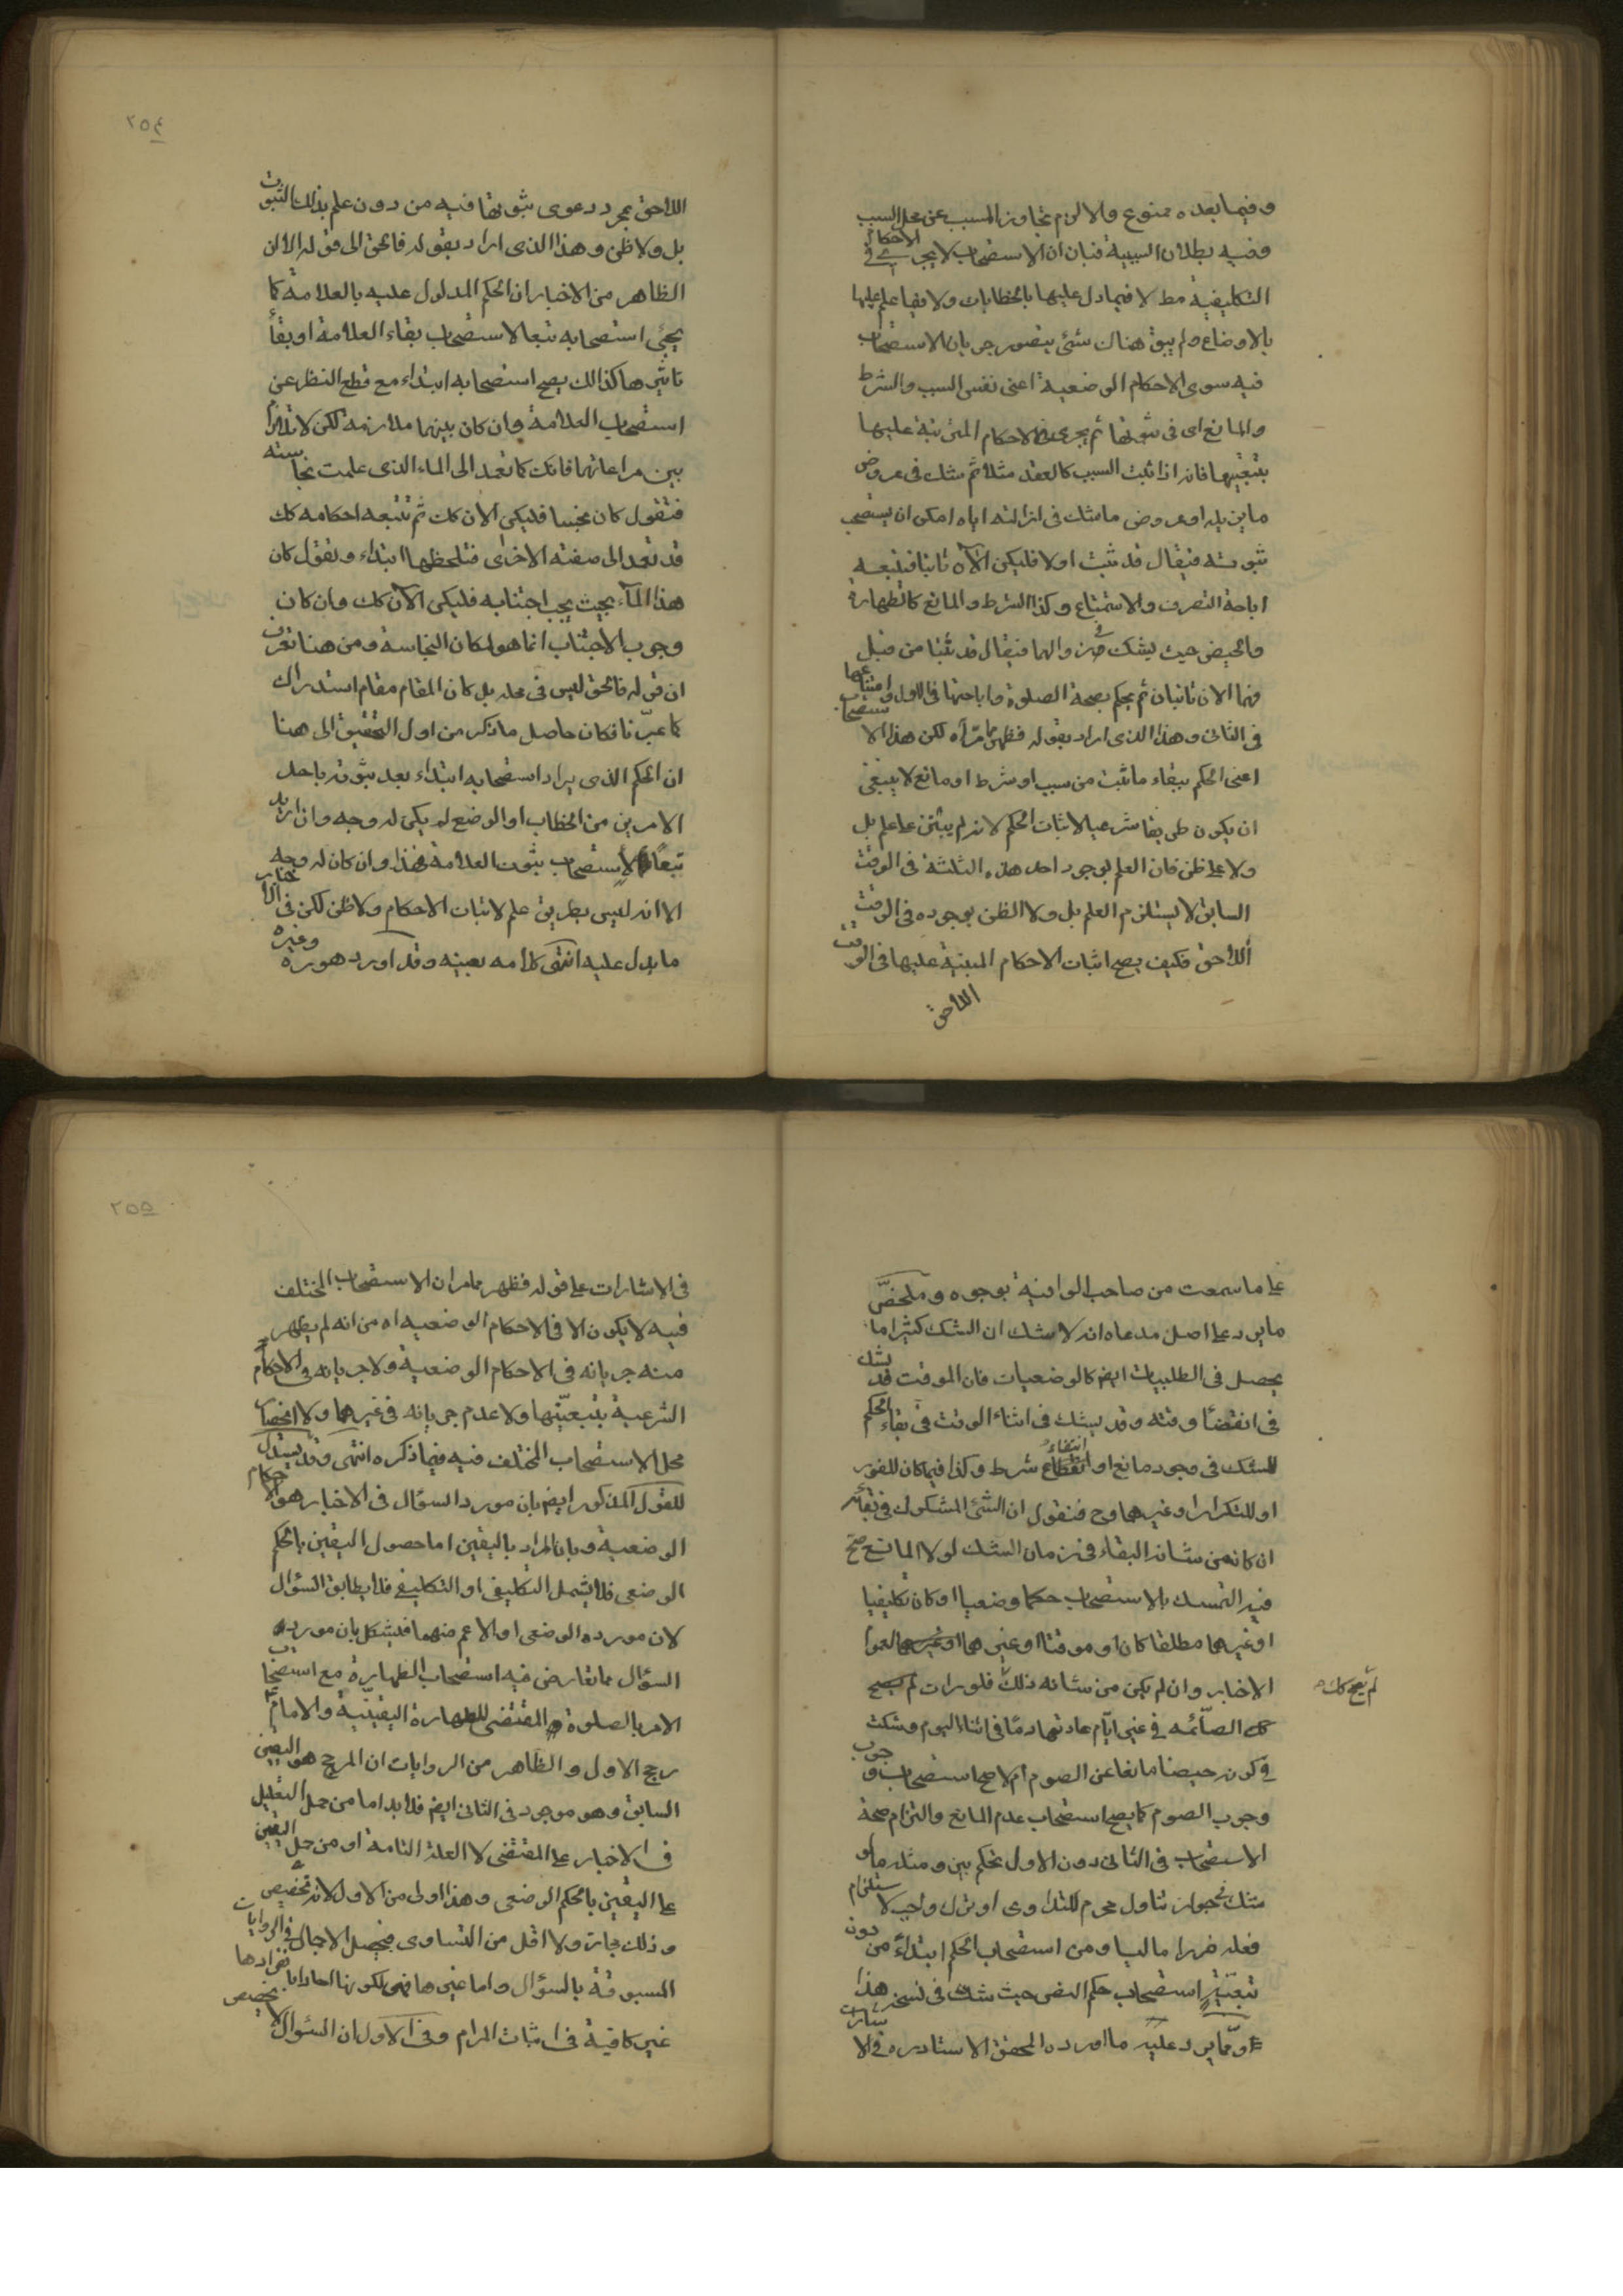 وفيما بعده ممنوع والا لزم تجاوز المسبب عن محل السبب
وفيه بطلان السببية فبان ان الاستصحاب لا يجرى في الاحكام
التكليفية مط لا فيما دل عليها بالخطابات ولا فيما علم عليها
بالاوضاع ولم يبق هناك شئ يتصور جريان الاستصحاب
فيه سوى الاحكام الوضعية اعنى نفس السبب والشرط
والمانع اى في ثبوتها ثم يجرى في الاحكام المترتبة عليها
بتبعيتها فانه اذا ثبت السبب كالعقد مثلا ثم شك في عروض
ما يزيله او عروض ما شك في ازالته اياه امكن ان يستصحب
ثبوته فيقال قد ثبت اولا فليكن الآن ثابتا فتتبعه
اباحة التصرف والاستمتاع وكذا الشرط والمانع كالطهارة
والحيض حيث يشك في زوالهما فيقال قد ثبتا من قبل
فهما الان ثابتان ثم يحكم بصحة الصلوة واباحتها في الاول وامتناعها
في الثانى وهذا الذى اراد بقوله فظهر مما مر آه لكن هذا الاستصحاب
اعنى الحكم ببقاء ما ثبت من سبب او شرط او مانع لا ينبغى
ان يكون طريقا شرعيا لاثبات الحكم لانه لم يبتن على علم بل
ولا على ظن فان العلم بوجود احد هذه الثلثة في الوقت
السابق لا يستلزم العلم بل ولا الظن بوجوده في الوقت
اللاحق فكيف يصح اثبات الاحكام المبنية عليها في الوقت
اللاحق
٢٥٤
اللاحق بمجرد دعوى ثبوتها فيه من دون علم بذلك الثبوت
بل ولا ظن وهذا الذى اراد بقوله فالحق الى قوله الا ان
الظاهر من الاخبار ان الحكم المدلول عليه بالعلامة كما
يجئ استصحابه تبعا لاستصحاب بقاء العلامة او بقاء
تاثيرها كذلك يصح استصحابه ابتداء مع قطع النظر عن
استصحاب العلامة وان كان بينهما ملازمة لكن لا تلازم
بين مراعاتهما فانك كما تعمد الى الماء الذى علمت نجاسته
فتقول كان نجسا فليكن الآن كك ثم تتبعه احكامه كك
قد تعمد الى صفته الاخرى فتلحظها ابتداء وتقول كان
هذا الماء بحيث يجب اجتنابه فليكن الآن كك وان كان
وجوب الاجتناب انما هو لمكان النجاسة ومن هنا تعرف
ان قوله فالحق ليس في محله بل كان المقام مقام استدراك
كما عبرنا فكان حاصل ما ذكر من اول التحقيق الى هنا
ان الحكم الذى يراد استصحابه ابتداء بعد ثبوته باحد
الامرين من الخطاب او الوضع لم يكن له وجه وان اريد
تبعا لاستصحاب ثبوت العلامة فهذا وان كان له وجه
الا انه ليس بطريق علم لاثبات الاحكام ولا ظن لكن في الاخبار
ما يدل عليه انتهى كلامه بعينه وقد اورد هو ره وغيره
على ما سمعت من صاحب الوافية بوجوه وملخص
ما يرد على اصل مدعاه انه لا شك ان الشك كثيرا ما
يحصل في الطلبيات ايض كالوضعيات فان الموقت قد يشك
في انقضاء وقته وقد يشك في اثناء الوقت في بقاء الحكم
للشك في وجود مانع او انتفاء شرط وكذا فيما كان للفور
او للتكرار او غيرهما وح فنقول ان الشئ المشكوك في بقائه
ان كان من شانه البقاء في زمان الشك لولا المانع صح
فيه التمسك بالاستصحاب حكما وضعيا او كان تكليفيا
او غيرهما مطلقا كان او موقتا او غيرهما لعموم
الاخبار وان لم يكن من شانه ذلك فلو رات لم يصح
لم يصح كك
الصائمه في غير ايام عادتها دما في اثناء اليوم وشكت
في كون حيضا مانعا عن الصوم ام لا صح استصحاب وجوب
وجوب الصوم كما يصح استصحاب عدم المانع والتزام صحة
الاستصحاب في الثانى دون الاول تحكم بين ومثله ما لو
شك بجواز تناول محرم للتداوى او ترك واجب لاستلزام
فعله ضررا ماليا ومن استصحاب الحكم ابتداء من دون
تبعية استصحاب حكم النص حيث شك في نسخه هذا
ومما يرد عليه ما اورده المحقق الاستاد ره في الاشارات
٢٥٥
في الاشارات على قوله فظهر مما مر ان الاستصحاب المختلف
فيه لا يكون الا في الاحكام الوضعيه اه من انه لم يظهر
منه جريانه في الاحكام الوضعية ولا جريانه في الاحكام
الشرعية بتبعيتها ولا عدم جريانه في غيرهما ولا انحصار
محل الاستصحاب المختلف فيه فيما ذكره انتهى وقد يستدل
للقول المذكور ايض بان مورد السؤال في الاخبار هو الاحكام
الوضعية وبان المراد باليقين اما حصول اليقين بالحكم
الوضعى فلا يشمل التكليفى او التكليفي فلا يطابق السؤال
لان مورده الوضعى او الاعم منهما فيشكل بان مورد
السؤال مما تعارض فيه استصحاب الطهارة مع استصحاب
الامر بالصلوة والمقتضى للطهارة اليقينية والامام ع
رجح الاول والظاهر من الروايات ان المرجح هو اليقين
السابق وهو موجود في الثانى ايض فلا بد اما من حمل التعليل
في الاخبار على المقتضى لا العلة التامة او من حمل اليقين
على اليقين بالحكم الوضعى وهذا اولى من الاول لانه تخصيص
وذلك مجاز ولا اقل من التساوى فيحصل الاجمال في الروايات
المسبوقة بالسؤال واما غيرها فهى لكونها احادا بانفرادها
غير كافية في اثبات المرام وفي الاول ان السؤال لا يخصص